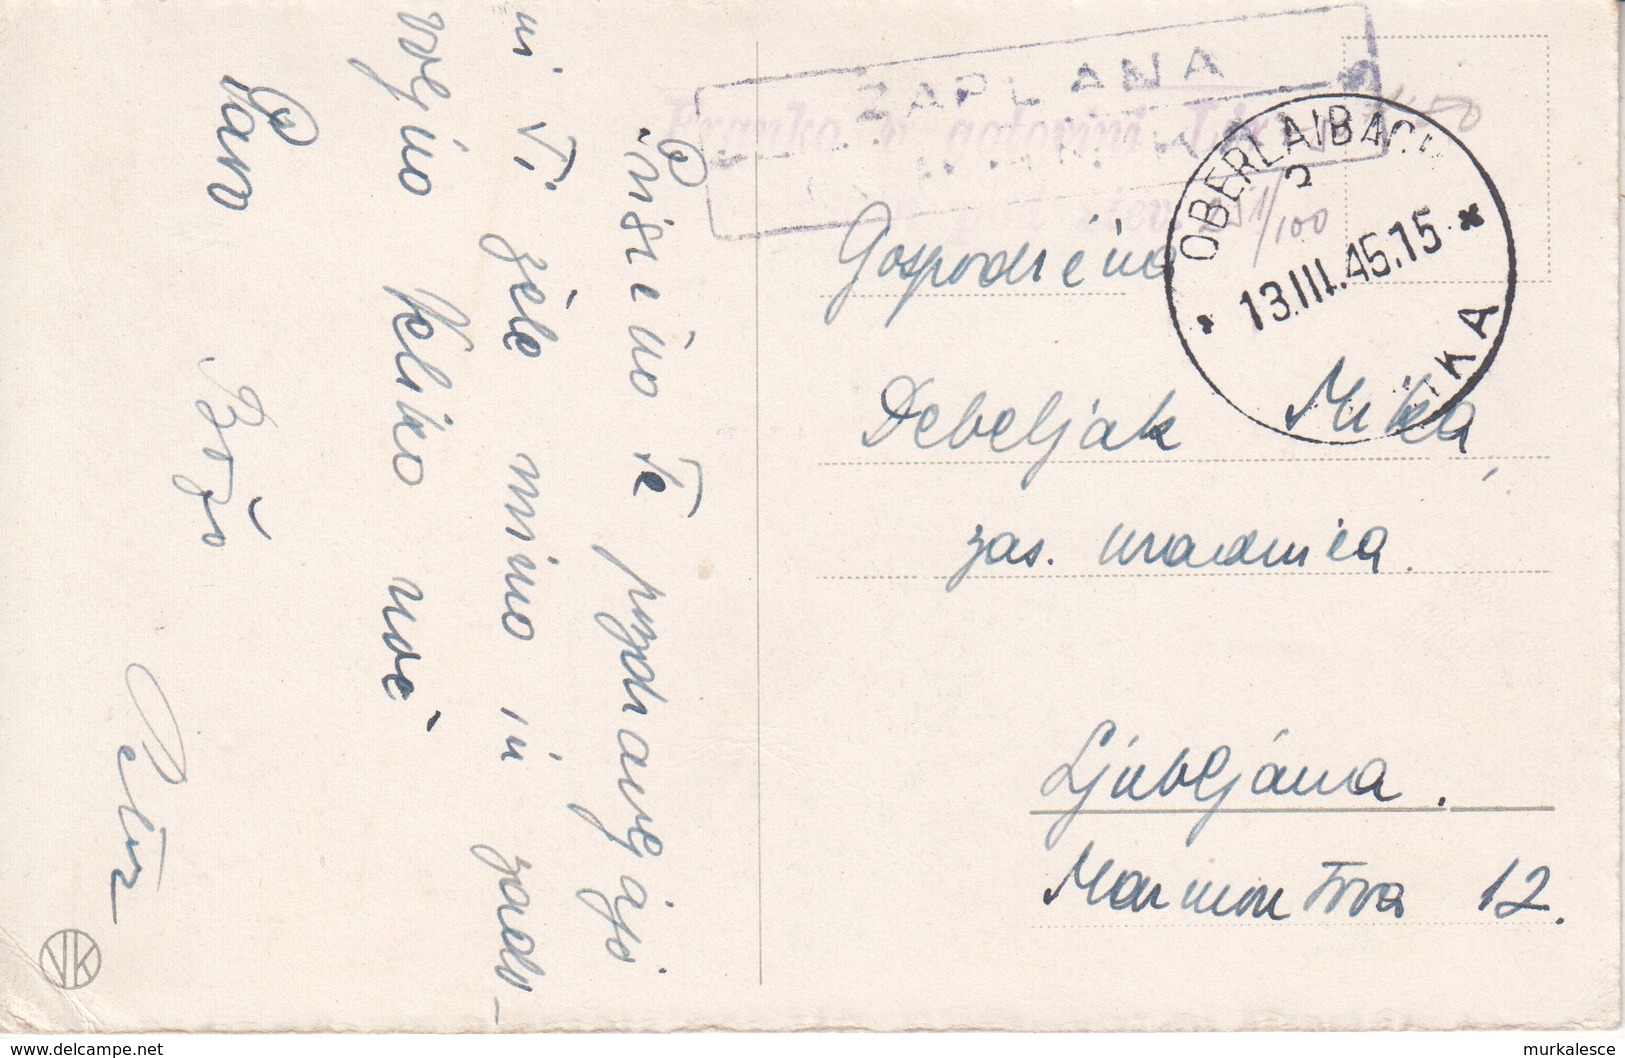 ZAPLANA
Franko v gotovini Lir
1/100
OBERLAIBACH
2
13.III.45.15
IKA
Gospodična
Debeljak Mika,
zas. uradnica.
Ljubljana.
Marmontova 12.
Prisrčno Te pozdravljajo
in Ti žele mirno in zado-
voljno Veliko noč
Pava
Božo
Peter
VK
www.delcampe.net
murkalesce